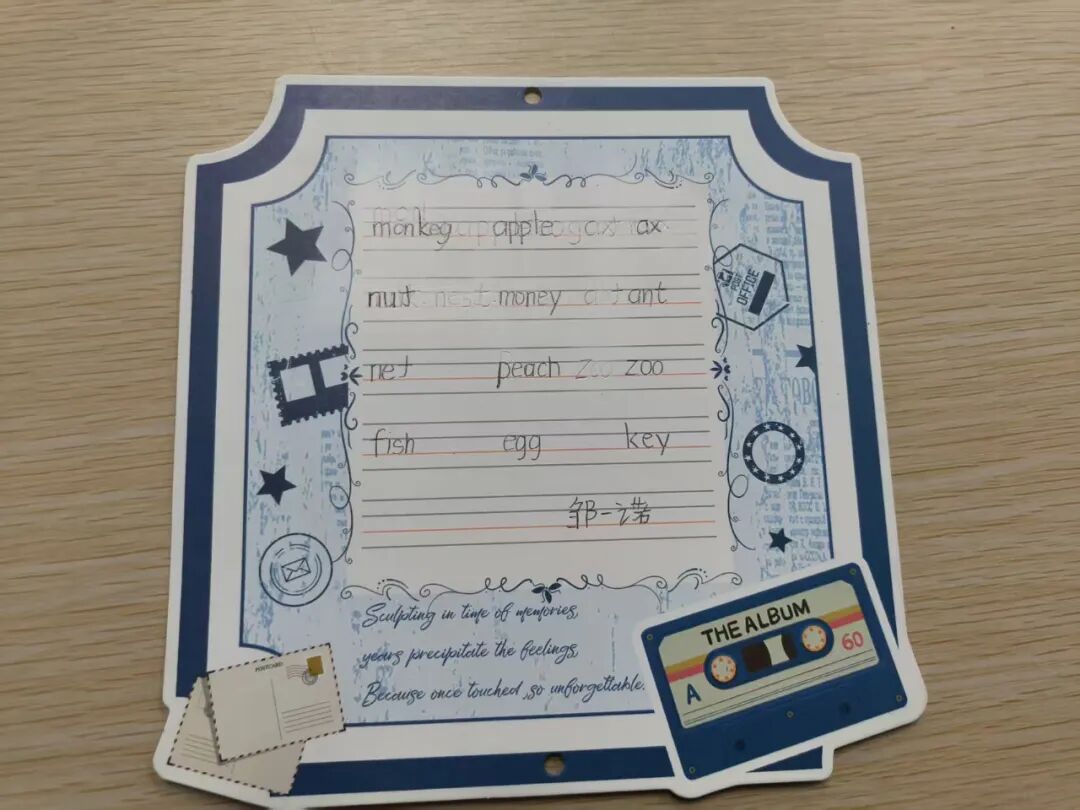 monkey apple ax
nut money ant
net peach zoo
fish egg key
邹一诺
Sculpting in time of memories,
years precipitate the feelings,
Because once touched ,so unforgettable.
POST OFFICE
POSTCARD
THE ALBUM
A
60